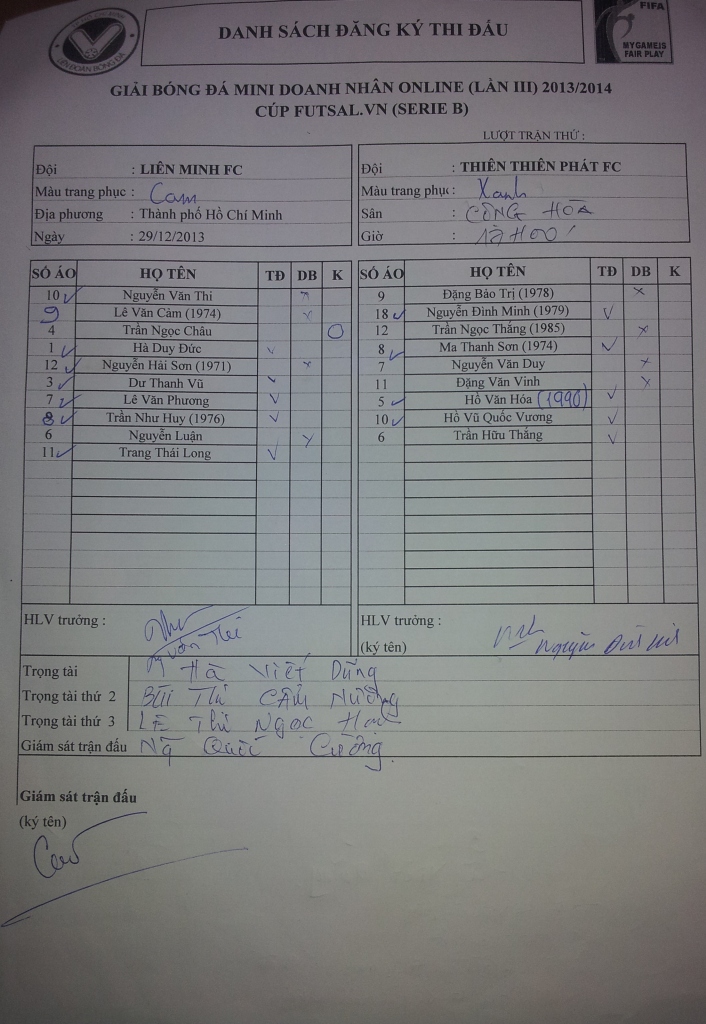 DANH SÁCH ĐĂNG KÝ THI ĐẤU
FIFA
MY GAME IS
FAIR PLAY
GIẢI BÓNG ĐÁ MINI DOANH NHÂN ONLINE (LẦN III) 2013/2014
CÚP FUTSAL.VN (SERIE B)
LƯỢT TRẬN THỨ :
Đội : LIÊN MINH FC
Màu trang phục : Cam
Địa phương : Thành phố Hồ Chí Minh
Ngày : 29/12/2013
Đội : THIÊN THIÊN PHÁT FC
Màu trang phục : Xanh
Sân : CỘNG HÒA
Giờ : 17H00'
SỐ ÁO HỌ TÊN TĐ DB K
10 Nguyễn Văn Thi
9 Lê Văn Cảm (1974)
4 Trần Ngọc Châu
1 Hà Duy Đức
12 Nguyễn Hải Sơn (1971)
3 Dư Thanh Vũ
7 Lê Văn Phương
8 Trần Như Huy (1976)
6 Nguyễn Luận
11 Trang Thái Long
HLV trưởng :
SỐ ÁO HỌ TÊN TĐ DB K
9 Đặng Bảo Trị (1978)
18 Nguyễn Đình Minh (1979)
12 Trần Ngọc Thắng (1985)
8 Ma Thanh Sơn (1974)
7 Nguyễn Văn Duy
11 Đặng Văn Vinh
5 Hồ Văn Hóa (1990)
10 Hồ Vũ Quốc Vương
6 Trần Hữu Thắng
HLV trưởng :
(ký tên)
Trọng tài Hà Viết Dũng
Trọng tài thứ 2 BÙI THỊ CẨM NƯƠNG
Trọng tài thứ 3 LÊ Thị NGỌC
Giám sát trận đấu Ng Quốc Cường
Giám sát trận đấu
(ký tên)